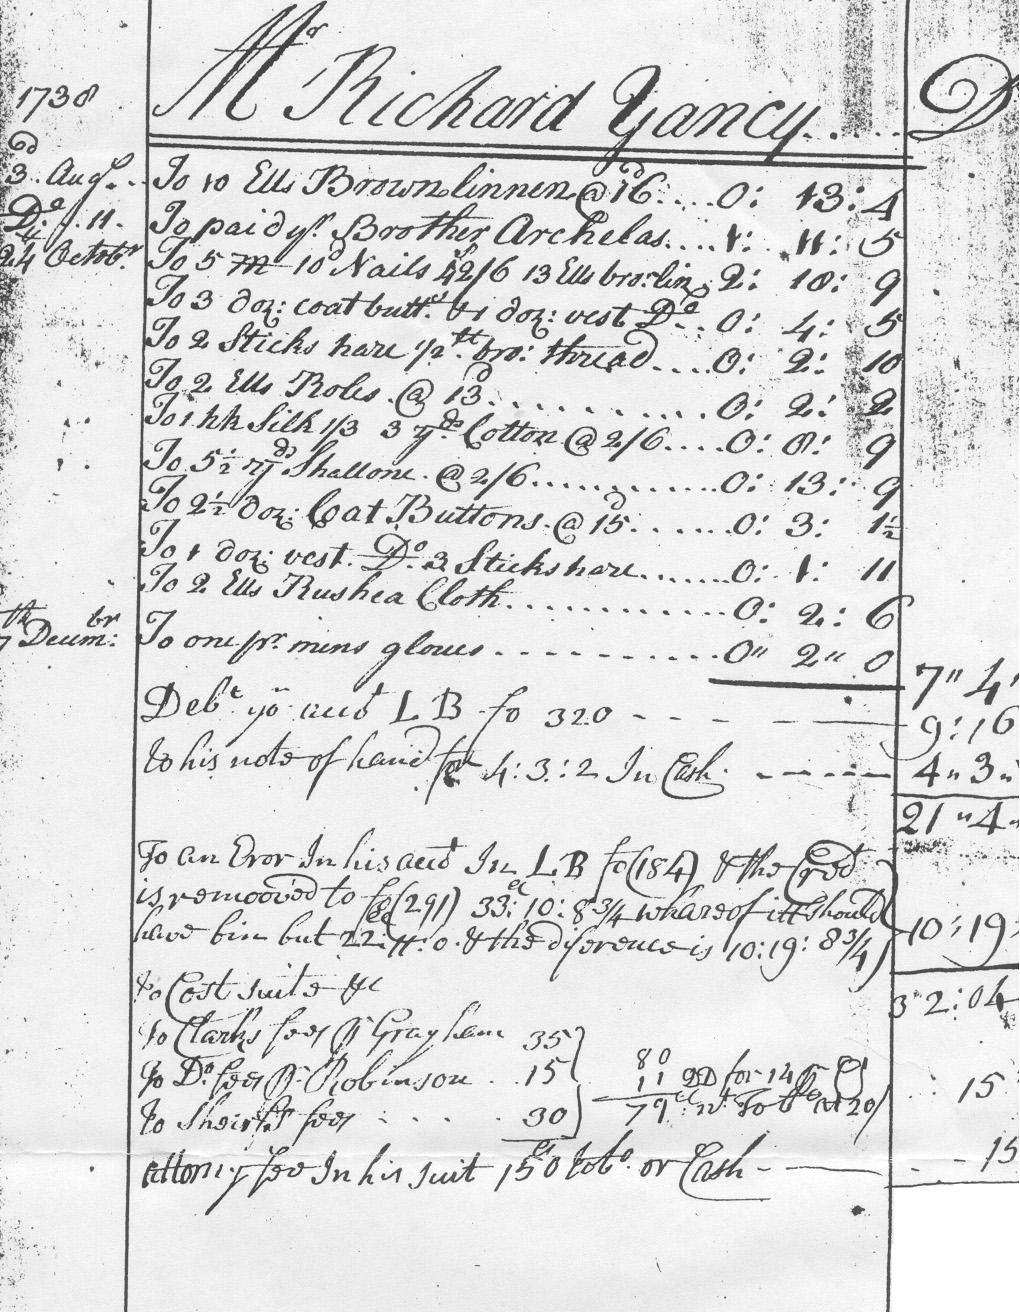 Mr Richard Yancy..... D
1738
3d Augt... To 10 Ells Brown linnen @ 16d.... 0: 13: 4
Do.. 11. To paid yr Brother Archelas.... 1: 11: 5
24 Octobr To 5 m 10d Nails 12/6 13 Ells bro: lin: 2: 18: 9
To 3 doz: coat butts & 1 doz: vest Do... 0: 4: 5
To 2 Sticks hare 1/2 tt bro: thread.... 0: 2: 10
To 2 Ells Roles @ 13d.......... 0: 2: 2
To 1 hk Silk 1/3 3 yds Cotton @ 2/6.... 0: 8: 9
To 5½ yds Shallone @ 2/6......... 0: 13: 9
To 2½ doz: Coat Buttons @ 15d...... 0: 3: 1½
To 1 doz: vest Do 2 Sticks hare....... 0: 1: 11
To 2 Ells Rushea Cloth............ 0: 2: 6
7th Decembr: To one pr mens gloves .......... 0" 2" 0 7" 4"
Debt yo acct L B fo 320 - - - - 9: 16
to his note of hand for 4: 3: 2 In Cash - - - - - 4" 3"
21 " 4"
To an Eror In his acct In L B fo (184) & the Cred
is remooved to fo (291) 33: 10: 8¾ whareof itt should
have bin but 22: 11: 0 & the diference is 10: 19: 8¾) 10: 19:
32: 04
to Cost suite &c
to Clarks fees Grayham 35
To Do fees Robinson .. 15
80
11 DD for 14
79 nt To 20 .. 15
to Sheirfs fees . . . . 30
attorny fee In his suit 150 tobo or Cash - — - - 15